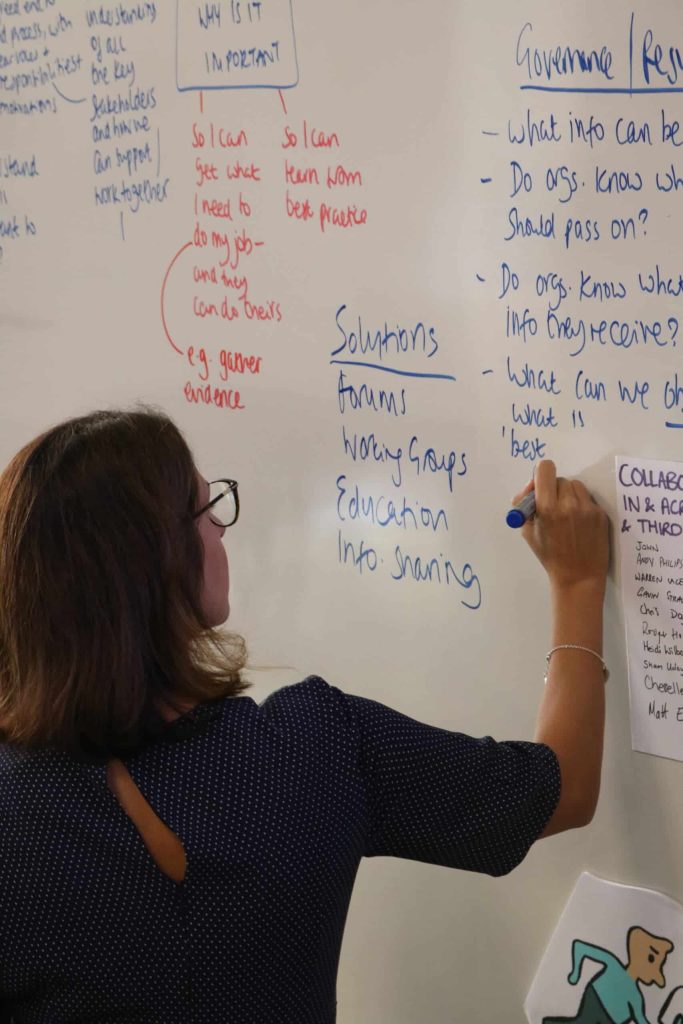 process, with
understanding
of all
the key
Stakeholders
and how we
can support
work together
WHY IS IT
IMPORTANT
So I can
get what
I need to
do my job-
and they
can do theirs
e.g. gather
evidence
So I can
learn from
best practice
Solutions
Forums
Working Groups
Education
Info. sharing
Governance /
- What info can be
- Do orgs. know
should pass on?
- Do orgs. know what
info they receive?
- What can we
what is
'best
COLLABO
IN & ACR
& THIRD
JOHN
ANDY PHILIPS
WARREN
GAVIN
Chris
Heidi
Sham
Cherelle
Matt E